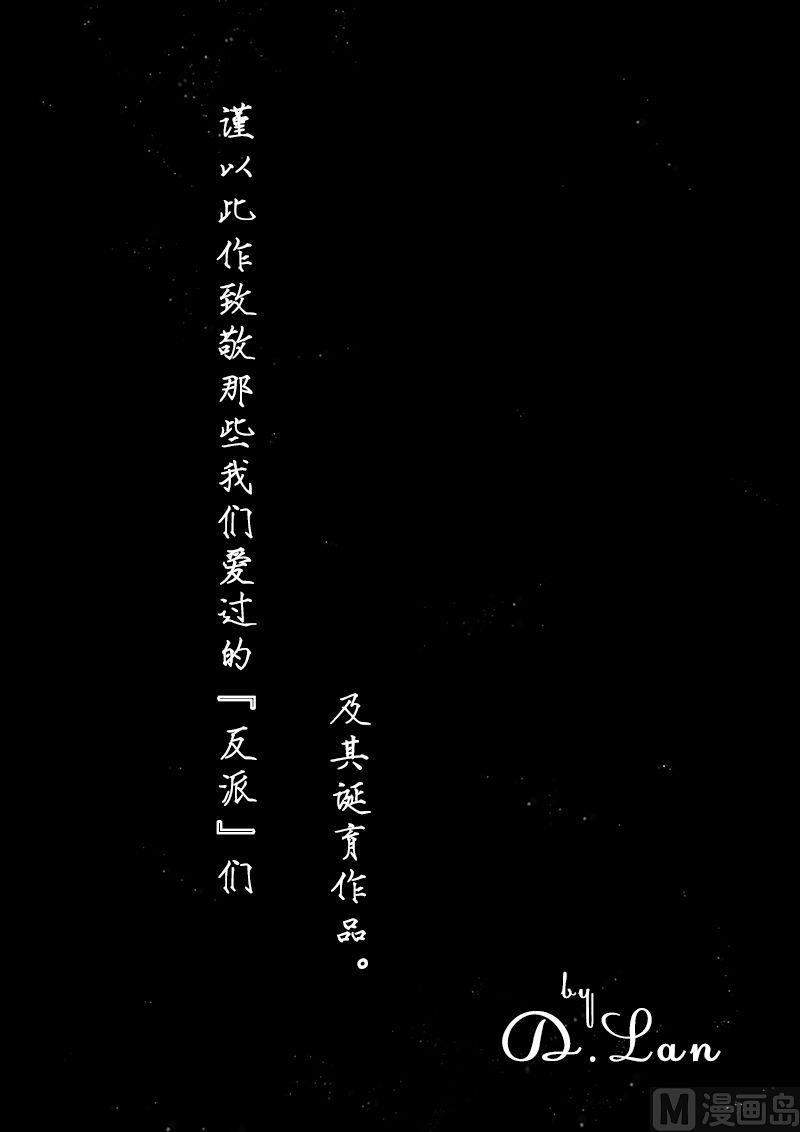 谨以此作致敬那些我们爱过的『反派』们
及其诞育作品。
by
D.Lan
M漫画岛